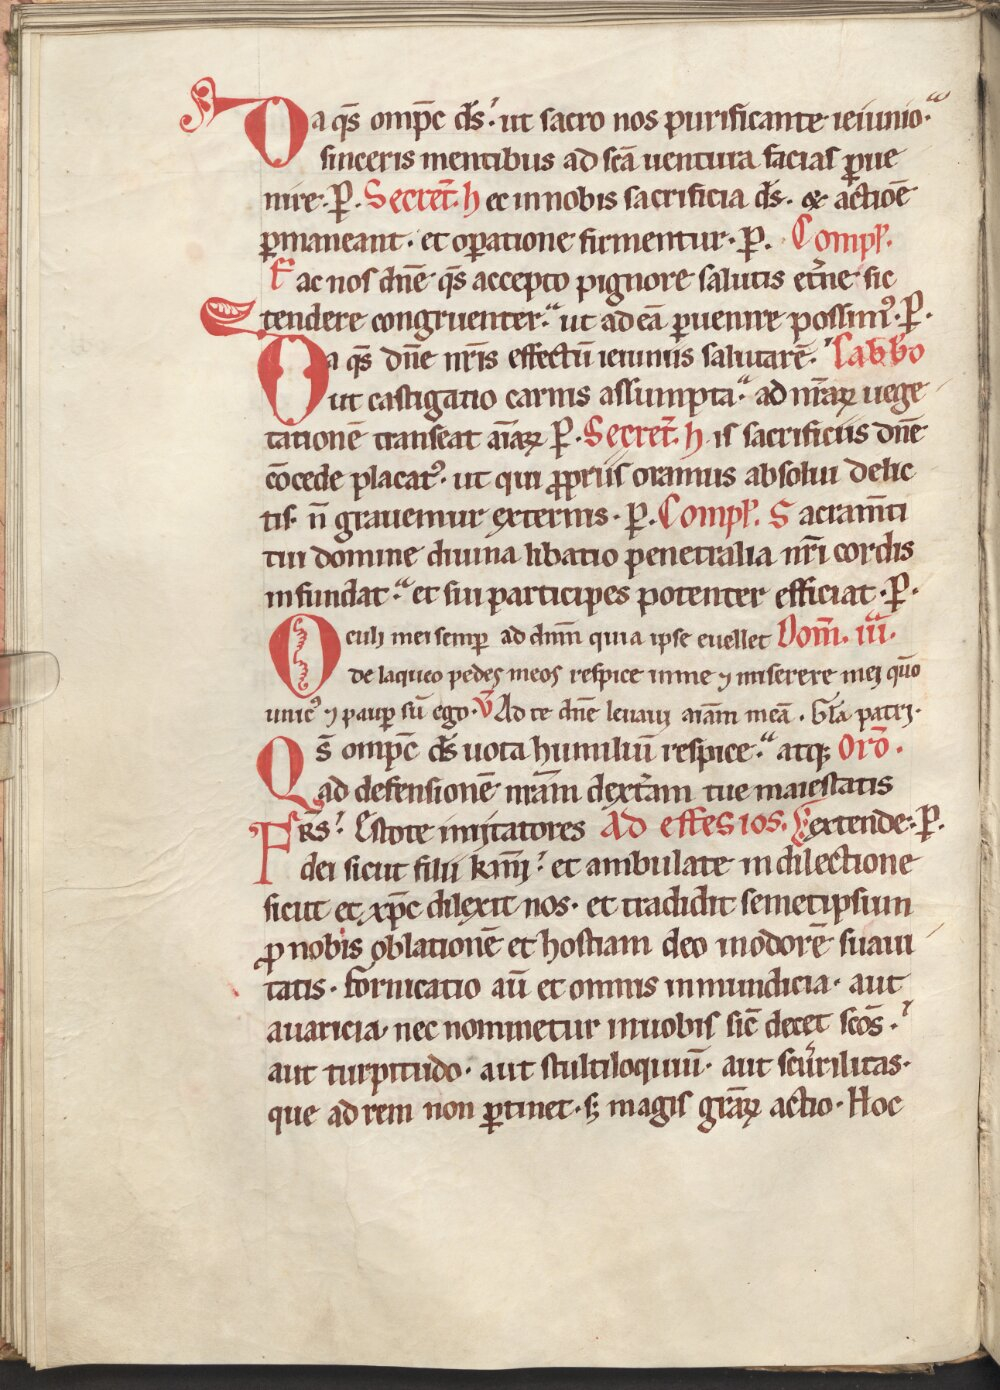 Da q̄s omp̄c ds̄. ut sacro nos purificante ieiunio.
sinceris mentibus ad sc̄a uentura facias ꝑue
nire. P̱. Secret̄. hec in nobis sacrificia ds̄. & actiōe
ꝑmaneant. et oꝑatione firmentur. P̱. Compl̄.
Fac nos dn̄e q̄s accepto pignore salutis et̄ne sic
tendere congruenter. ut ad eā ꝑuenire possimꝰ. P̱.
Da q̄s dn̄e nr̄is effectū ieiuniis salutarē. Sabb̄o
ut castigatio carnis assumpta. ad nr̄aꝝ uege
tationē transeat aīaꝝ P̱. Secret̄. his sacrificiis dn̄e
cōcede placatꝰ. ut qui ꝓpriis oramus absolui delic
tis. n̄ grauemur externis. P̱. Compl̄. Sacram̄ti
tui domine diuina libatio penetralia nr̄i cordis
infundat. et sui participes potenter efficiat. P̱.
Oculi mei semꝑ ad dn̄m quia ipse euellet Dom̄. iii.
de laqueo pedes meos respice in me ⁊ miserere mei qm̄o
unicꝰ ⁊ pauꝑ sū ego. V̄ Ad te dn̄e leuaui aīam meā. Gl̄a patri.
Qs̄ omp̄c ds̄ uota humiliū respice. atqꝫ Orō.
ad defensionē nr̄am dext̄am tue maiestatis
Frs̄. Estote imitatores Ad effesios. extende. P̱.
dei sicut filii km̄i. et ambulate in dilectione
sicut et xp̄c dilexit nos. et tradidit semetipsum
ꝓ nobis oblationē et hostiam deo in odorē suaui
tatis. fornicatio aū et omnis inmundicia. aut
auaricia. nec nominetur in uobis sic̄ decet scōs.
aut turpitudo. aut stultiloquiū. aut scurrilitas.
que ad rem non ꝑtinet. sꝫ magis gr̄aꝝ actio. Hoc